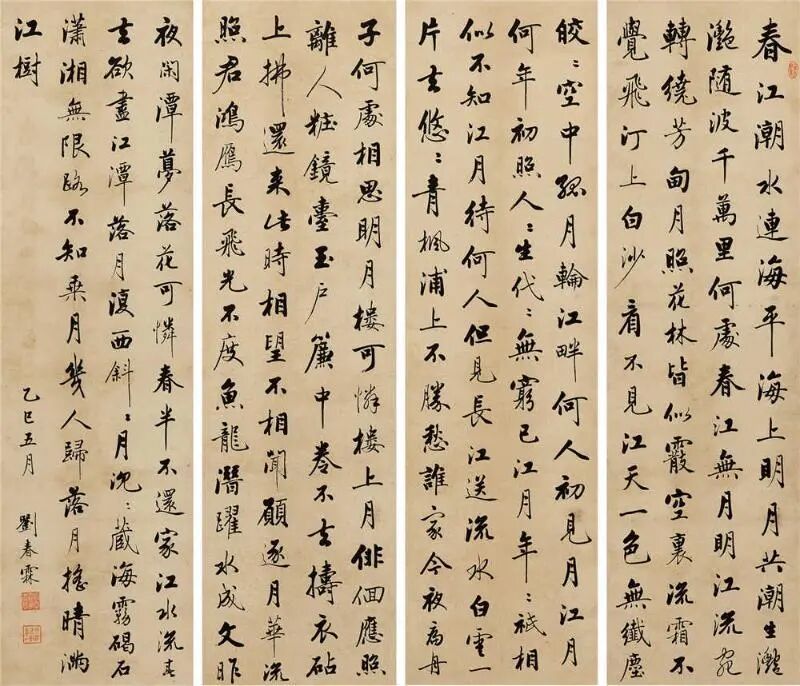 春江潮水連海平海上明月共潮生灩
灩随波千萬里何處春江無月明江流宛
轉繞芳甸月照花林皆似霰空裏流霜不
覺飛汀上白沙看不見江天一色無纖塵
皎〻空中孤月輪江畔何人初見月江月
何年初照人〻生代〻無窮已江月年〻祇相
似不知江月待何人但見長江送流水白雲一
片去悠〻青楓浦上不勝愁誰家今夜扁舟
子何處相思明月樓可憐樓上月徘徊應照
離人粧鏡臺玉户簾中卷不去擣衣砧
上拂還来此時相望不相聞願逐月華流
照君鴻鴈長飛光不度魚龍潛躍水成文昨
夜閑潭夢落花可憐春半不還家江水流春
去欲盡江潭落月復西斜〻月沈〻藏海霧碣石
瀟湘無限路不知乗月幾人歸落月搖晴滿
江樹
乙巳五月 劉春霖